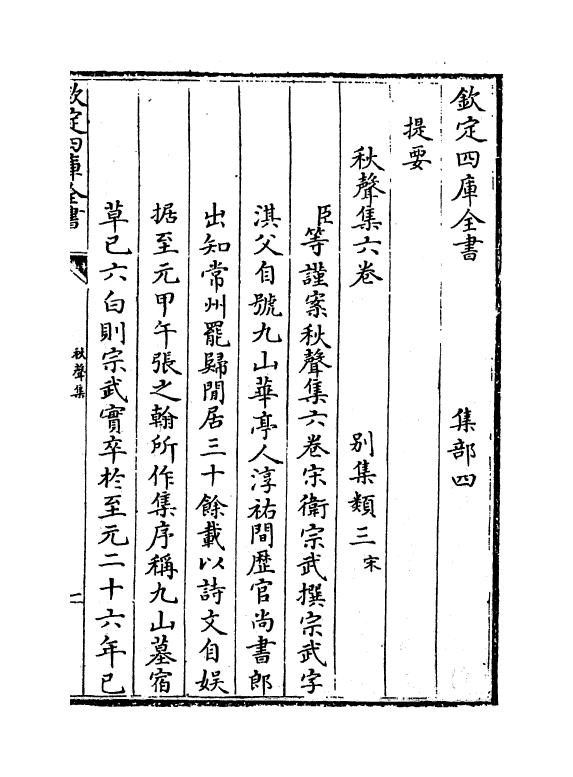 欽定四庫全書　集部四
提要
秋聲集六卷　别集類三宋
臣等謹案秋聲集六卷宋衛宗武撰宗武字
淇父自號九山華亭人淳祐間歴官尚書郎
出知常州罷歸閒居三十餘載以詩文自娱
据至元甲午張之翰所作集序稱九山墓宿
草已六白則宗武實卒於至元二十六年已
欽定四庫全書
秋聲集
一